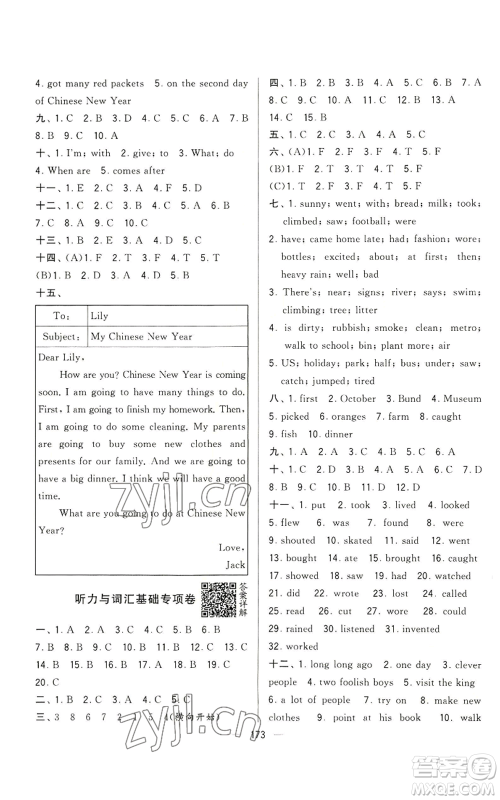 4. got many red packets　5. on the second day
of Chinese New Year
九、1. B　2. A　3. C　4. C　5. A　6. A　7. B
8. B　9. C　10. A
十、1. I'm; with　2. give; to　3. What; do
4. When are　5. comes after
十一、1. E　2. C　3. A　4. F　5. D
十二、1. C　2. C　3. A　4. B　5. A　6. B
7. C　8. A　9. C　10. D
十三、1. B　2. D　3. E　4. C　5. A
十四、(A)1. F　2. F　3. T　4. F　5. T
(B)1. D　2. C　3. A　4. B　5. D
十五、
To: Lily
Subject: My Chinese New Year
Dear Lily,
How are you? Chinese New Year is coming
soon. I am going to have many things to do.
First, I am going to finish my homework. Then,
I am going to do some cleaning. My parents
are going to buy some new clothes and
presents for our family. And we are going to
have a big dinner. I think we will have a good
time.
What are you going to do at Chinese New
Year?
Love,
Jack
听力与词汇基础专项卷
答案详解
一、1. A　2. B　3. C　4. A　5. C　6. A
7. B　8. A　9. B　10. C　11. B　12. A
13. B　14. B　15. C　16. A　17. C　18. B　19. B
20. C
二、1. B　2. A　3. C　4. A　5. C
三、3　8　6　7　2　1　5　4(横向开始)
四、1. B　2. B　3. C　4. B　5. A　6. B　7. A
8. C　9. C　10. B　11. C　12. A　13. A
14. C　15. B
五、1. C　2. B　3. A　4. B　5. C
六、(A)1. F　2. T　3. F　4. F　5. F
(B)1. F　2. T　3. T　4. F　5. T
(C)1. T　2. F　3. F　4. T　5. F
七、1. sunny; went; with; bread; milk; took;
climbed; saw; football; were
2. have; came home late; had; fashion; wore;
bottles; excited; about; at this time; then;
heavy rain; well; bad
3. There's; near; signs; river; shouldn't;
climbing; tree; litter
4. is dirty; rubbish; smoke; clean; metro;
walk to school; bin; plant more; air
5. US; holiday; park; half; bus; under; sit;
catching; jumped; tired
八、1. first　2. October　3. Bund　4. Museum
5. picked　6. oranges　7. farm　8. caught
9. fish　10. dinner
九、1. C　2. A　3. B　4. A　5. C
十、1. C　2. C　3. D　4. C　5. A　6. D　7. D
8. B　9. B　10. A　11. D　12. D
十一、1. put　2. took　3. lived　4. looked
5. flew　6. was　7. walked　8. were
9. shouted　10. skated　11. said　12. went
13. bought　14. picked　15. asked　16. cooked
17. showed　18. cleaned　19. had　20. watched
21. ate　22. pulled　23. collected　24. did
25. studied　26. could　27. drew　28. saw
29. rained　30. listened　31. invented
32. worked
十二、1. long long ago　2. one day　3. clever
people　4. two foolish boys　5. visit the king
6. a lot of people　7. try on　8. make new
clothes　9. point at his book　10. walk
173
zyjl.cn
zyjl.cn
答案圈
MXQE.COM